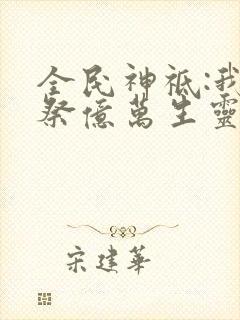 全民神祇:我
祭億萬生靈
宋建華